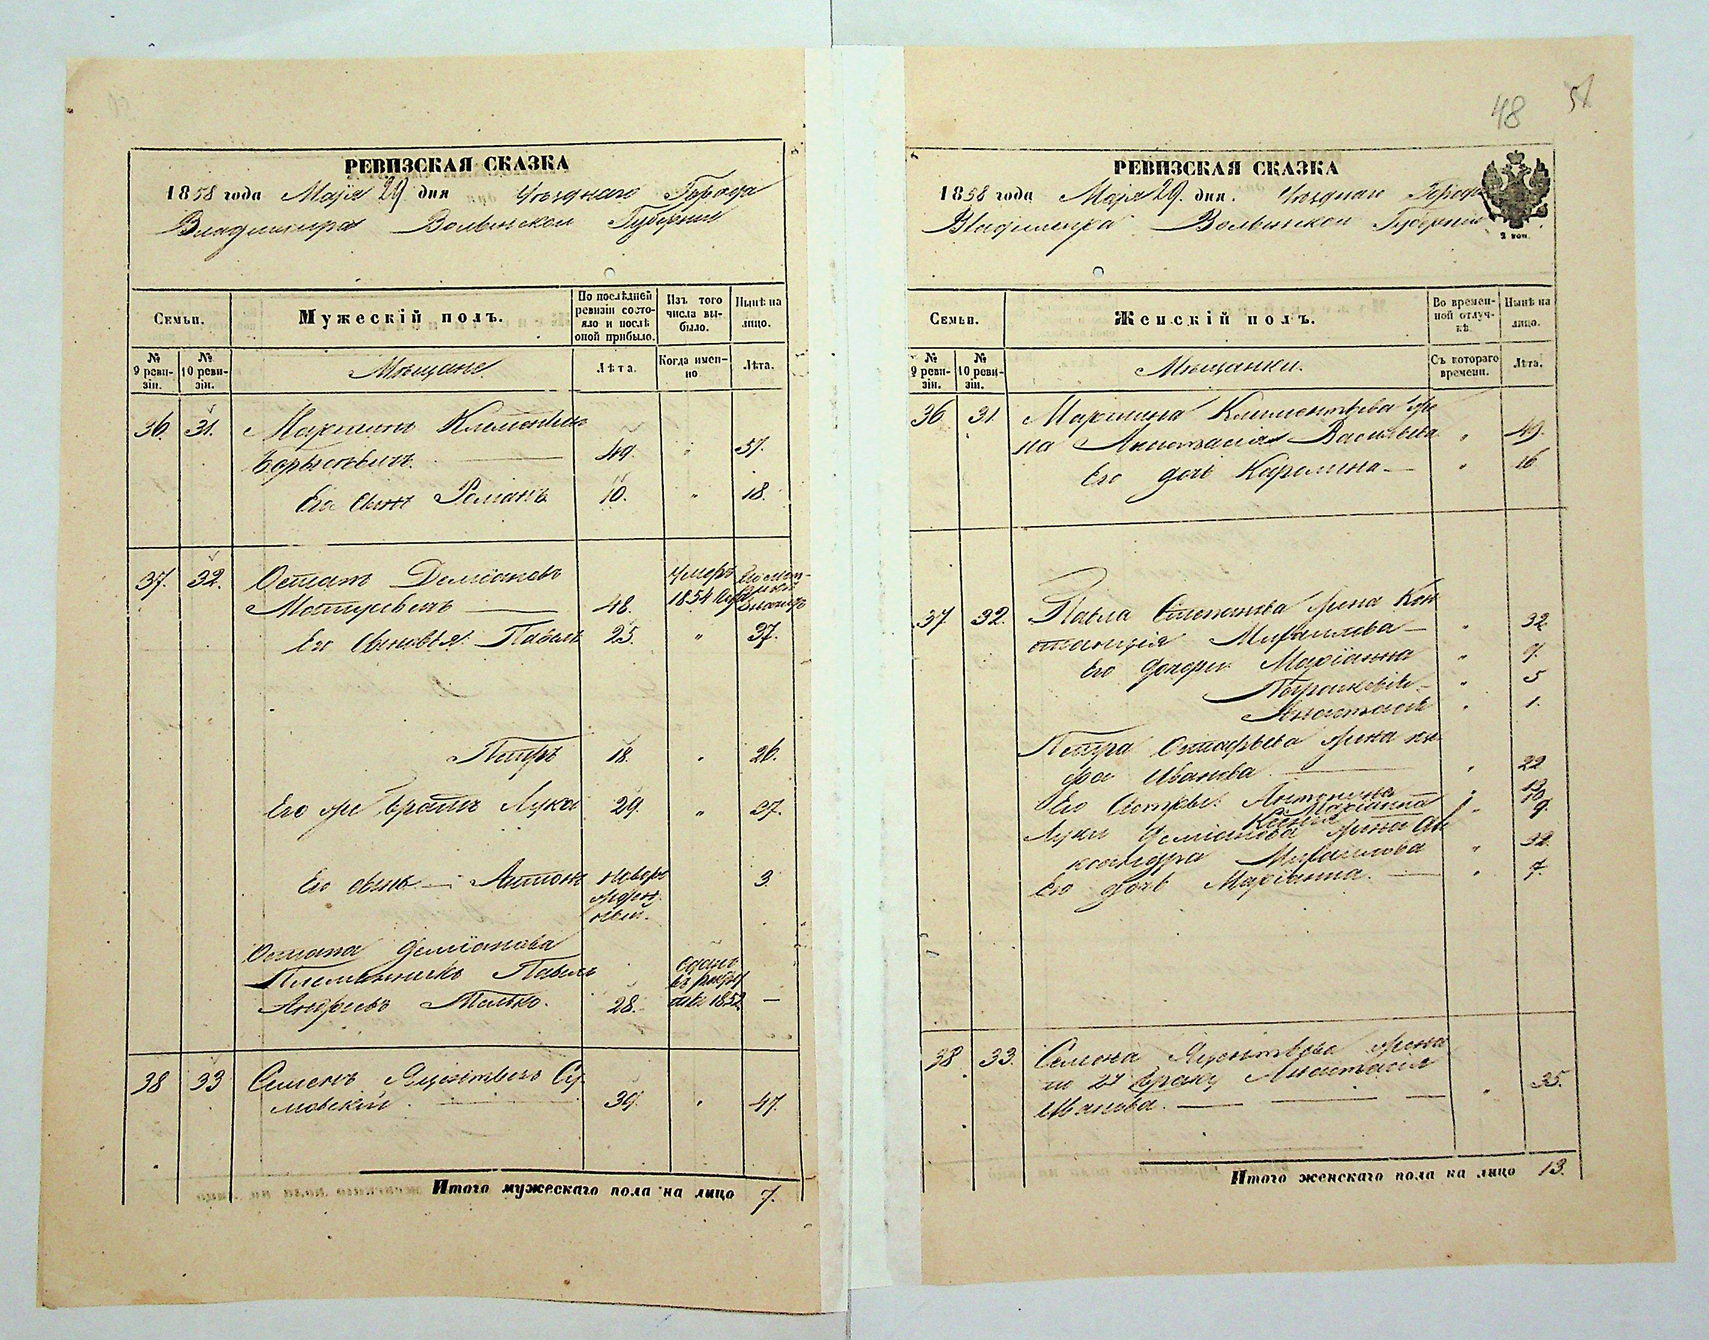 РЕВИЗСКАЯ СКАЗКА
1858 года Маія 29 дня Уѣзднаго Города
Владимира Волынской Губерніи
Семьи.
Мужескій полъ.
По послѣдней ревизіи состояло и послѣ оной прибыло.
Изъ того числа выбыло.
Нынѣ на лицо.
№ 9 ревизіи.
№ 10 ревизіи.
Мѣщане.
Лѣта.
Когда именно
Лѣта.
36. 31. Мартинъ
49. " 57.
Его Сынъ Романъ 10. " 18.
37. 32. Остапъ Деміановъ Умеръ
48. 1854
Его Сыновья: Павелъ 25. " 37.
Петръ 18. " 26.
Его же братъ Лука 29. " 37.
Его сынъ — Антонъ 3.
Остапа Деміанова
Племянникъ Павелъ
Андреевъ 28. 1852 —
38 33 Семенъ
мовскій 39. " 47.
Итого мужескаго пола на лицо 7.
48
51
РЕВИЗСКАЯ СКАЗКА
1858 года Маія 29. дня. Уѣзднаго Города
Владимира Волынской Губерніи
2 коп.
Семьи.
Женскій полъ.
Во временной отлучкѣ.
Нынѣ на лицо.
№ 9 ревизіи.
№ 10 ревизіи.
Мѣщанки.
Съ котораго времени.
Лѣта.
36 31 Мартина Климентьева же
на Анастасія Васильева " 49.
Его дочь Каролина — " 16
37 32. Павла жена Кон
станція Михайлова — " 32
Его дочери Маріанна " 9.
" 5
Анастасія " 1.
Петра Остафьева жена
Иванова " 22
Его Сестры: Антонина
Маріанна
Луки Деміанова жена Але
ксандра Михайлова " 32.
Его дочь Маріанна. — " 7.
38 33. Семена жена
по 2му браку Анастасія
Иванова. — " 35.
Итого женскаго пола на лицо 13.